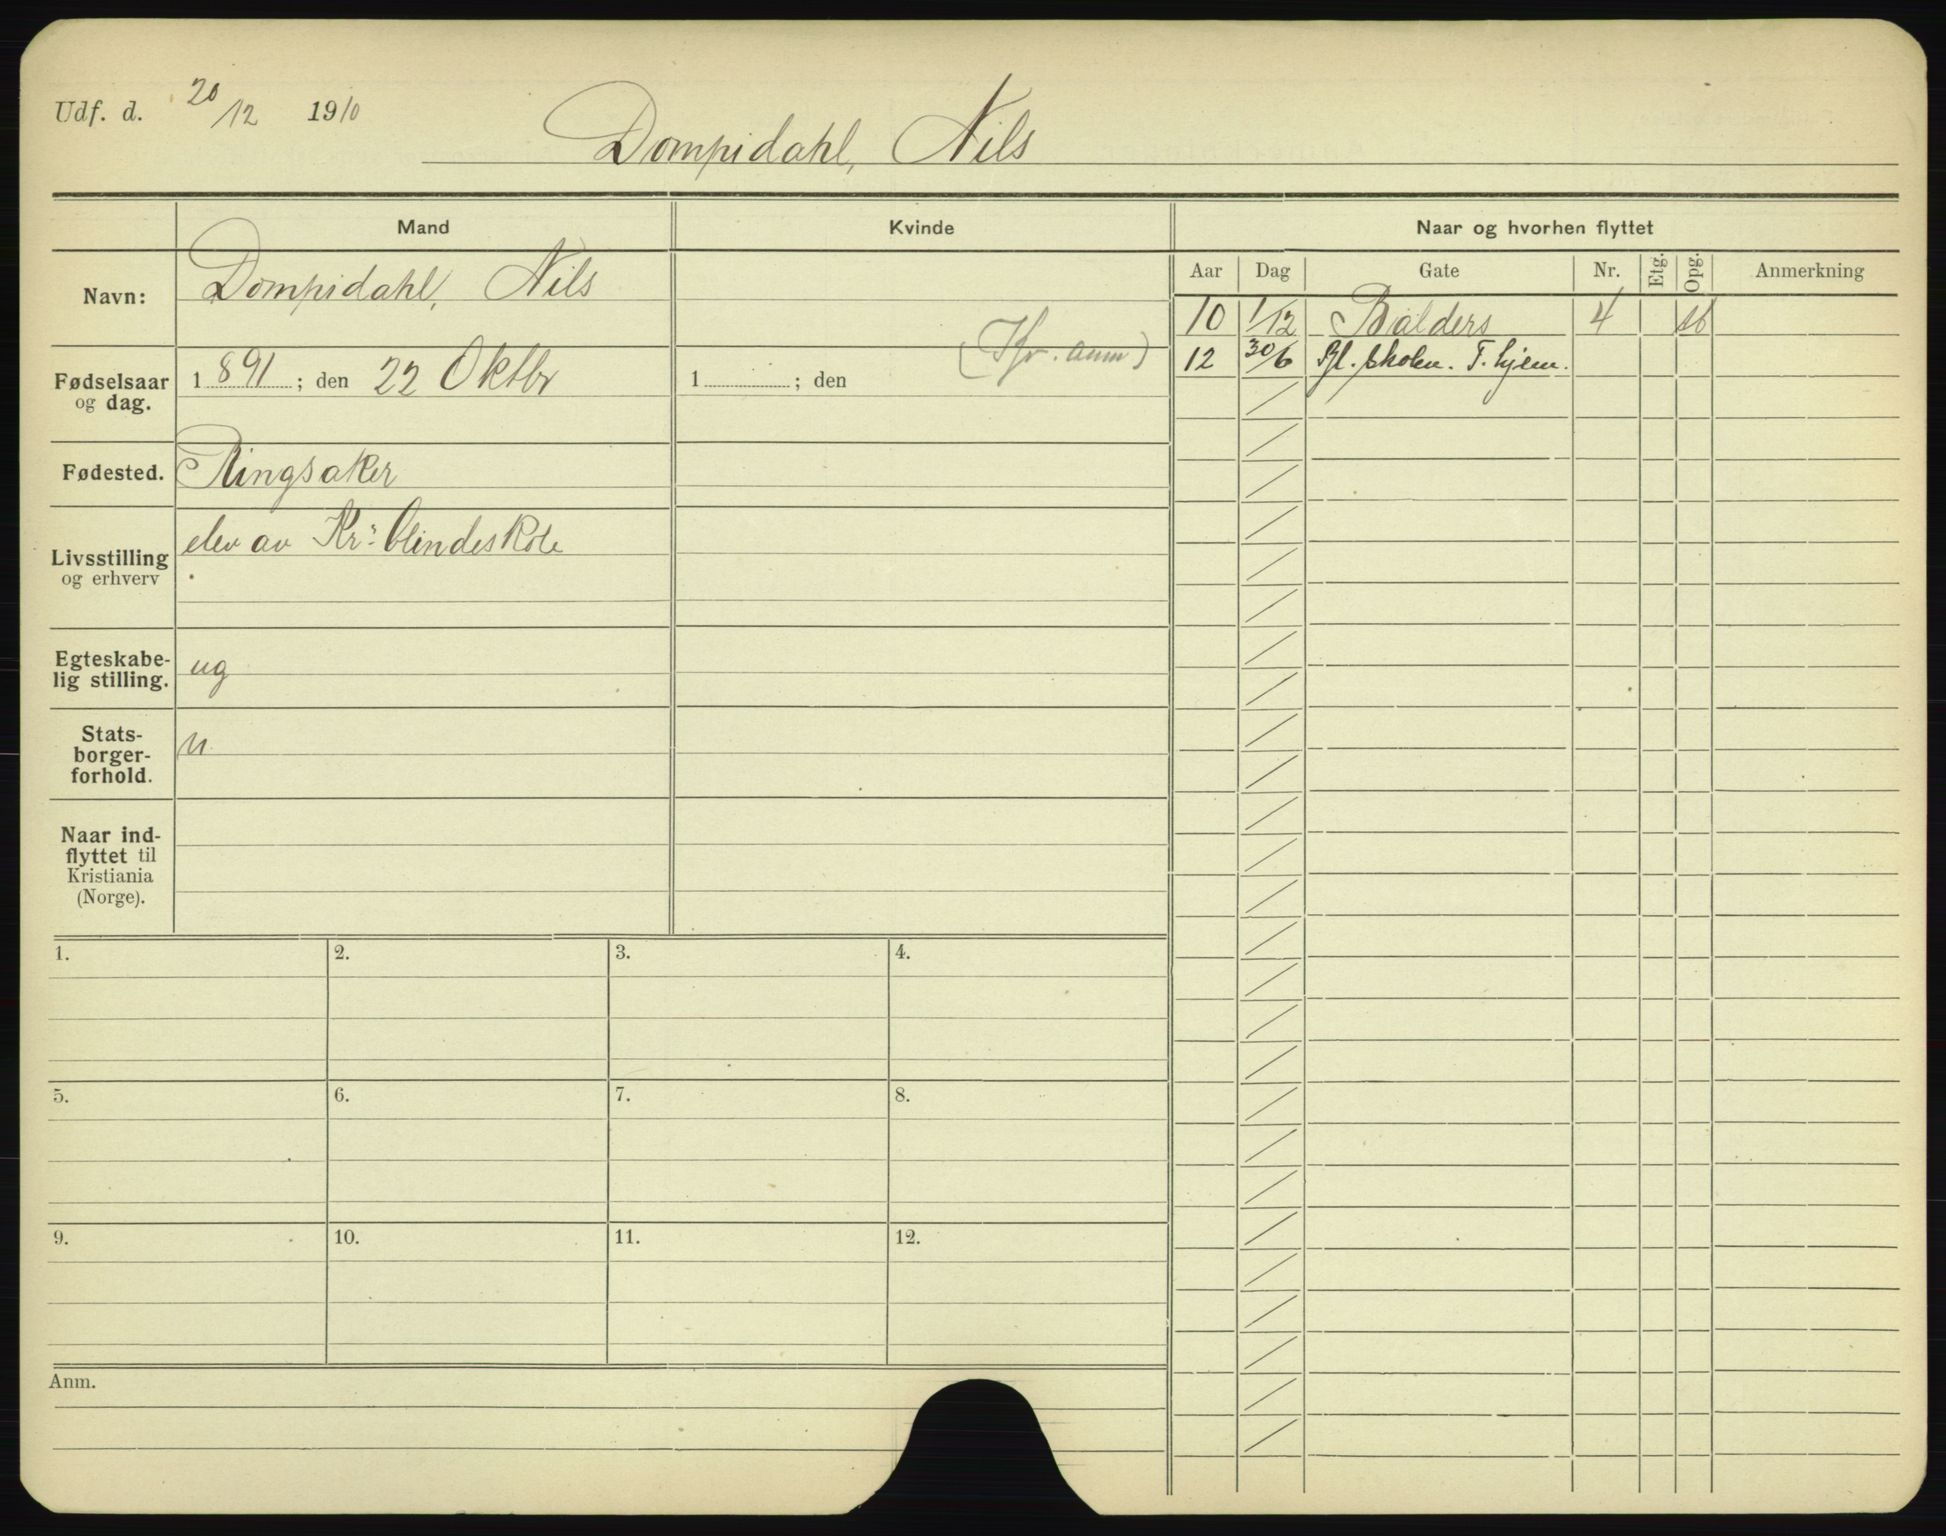 Udf. d. 20/12 1910
Dompidahl, Nils
Mand
Kvinde
Naar og hvorhen flyttet
Navn:
Dompidahl, Nils
Aar Dag Gate Nr. Etg. Opg. Anmerkning
10 1/12 Balders 4
12 30/6 Bl. skolen. F. hjem.
Fødselsaar
og dag.
1891; den 22 Oktbr
1 ; den
Fødested.
Ringsaker
Livsstilling
og erhverv
elev av Kr: blindeskole
Egteskabe-
lig stilling.
ug
Stats-
borger-
forhold.
n
Naar ind-
flyttet til
Kristiania
(Norge).
1. 2. 3. 4.
5. 6. 7. 8.
9. 10. 11. 12.
Anm.